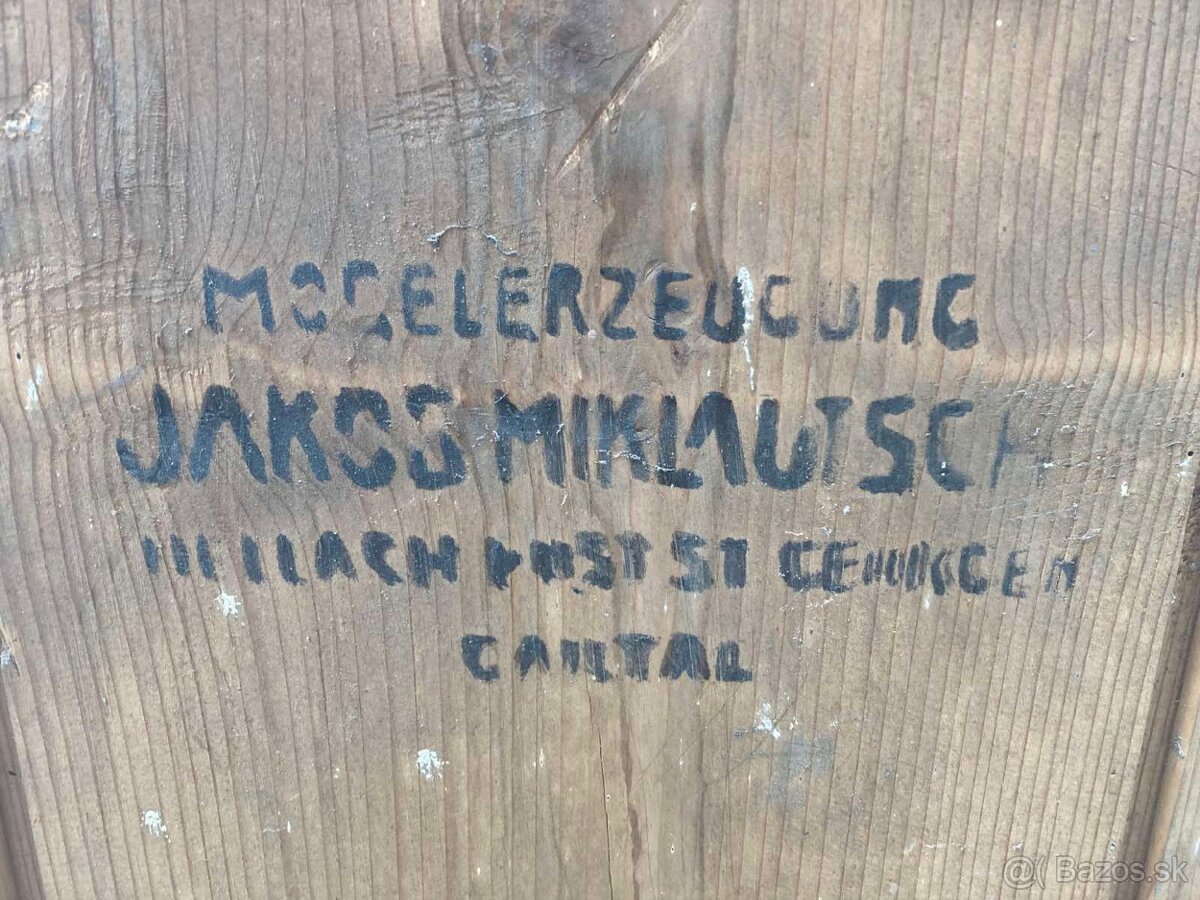 MODELERZEUGUNG
JAKOB MIKLAUTSCH
POST ST GEORGEN
GAILTAL
@( Bazos.sk